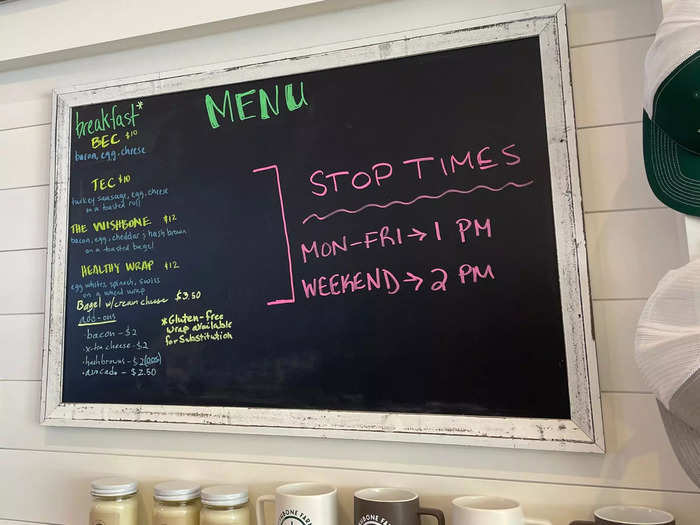 MENU
breakfast*
BEC $10
bacon, egg, cheese
TEC $10
turkey sausage, egg, cheese
on a toasted roll
THE WISHBONE $12
bacon, egg, cheddar, hash brown
on a toasted bagel
HEALTHY WRAP $12
egg whites, spinach, swiss
on a wheat wrap
Bagel w/cream cheese $3.50
add-ons
• bacon - $2
• x-tra cheese - $2
• hashbrowns - $2
• avocado - $2.50
*Gluten-free
wrap available
for Substitution
STOP TIMES
MON-FRI → 1 PM
WEEKEND → 2 PM